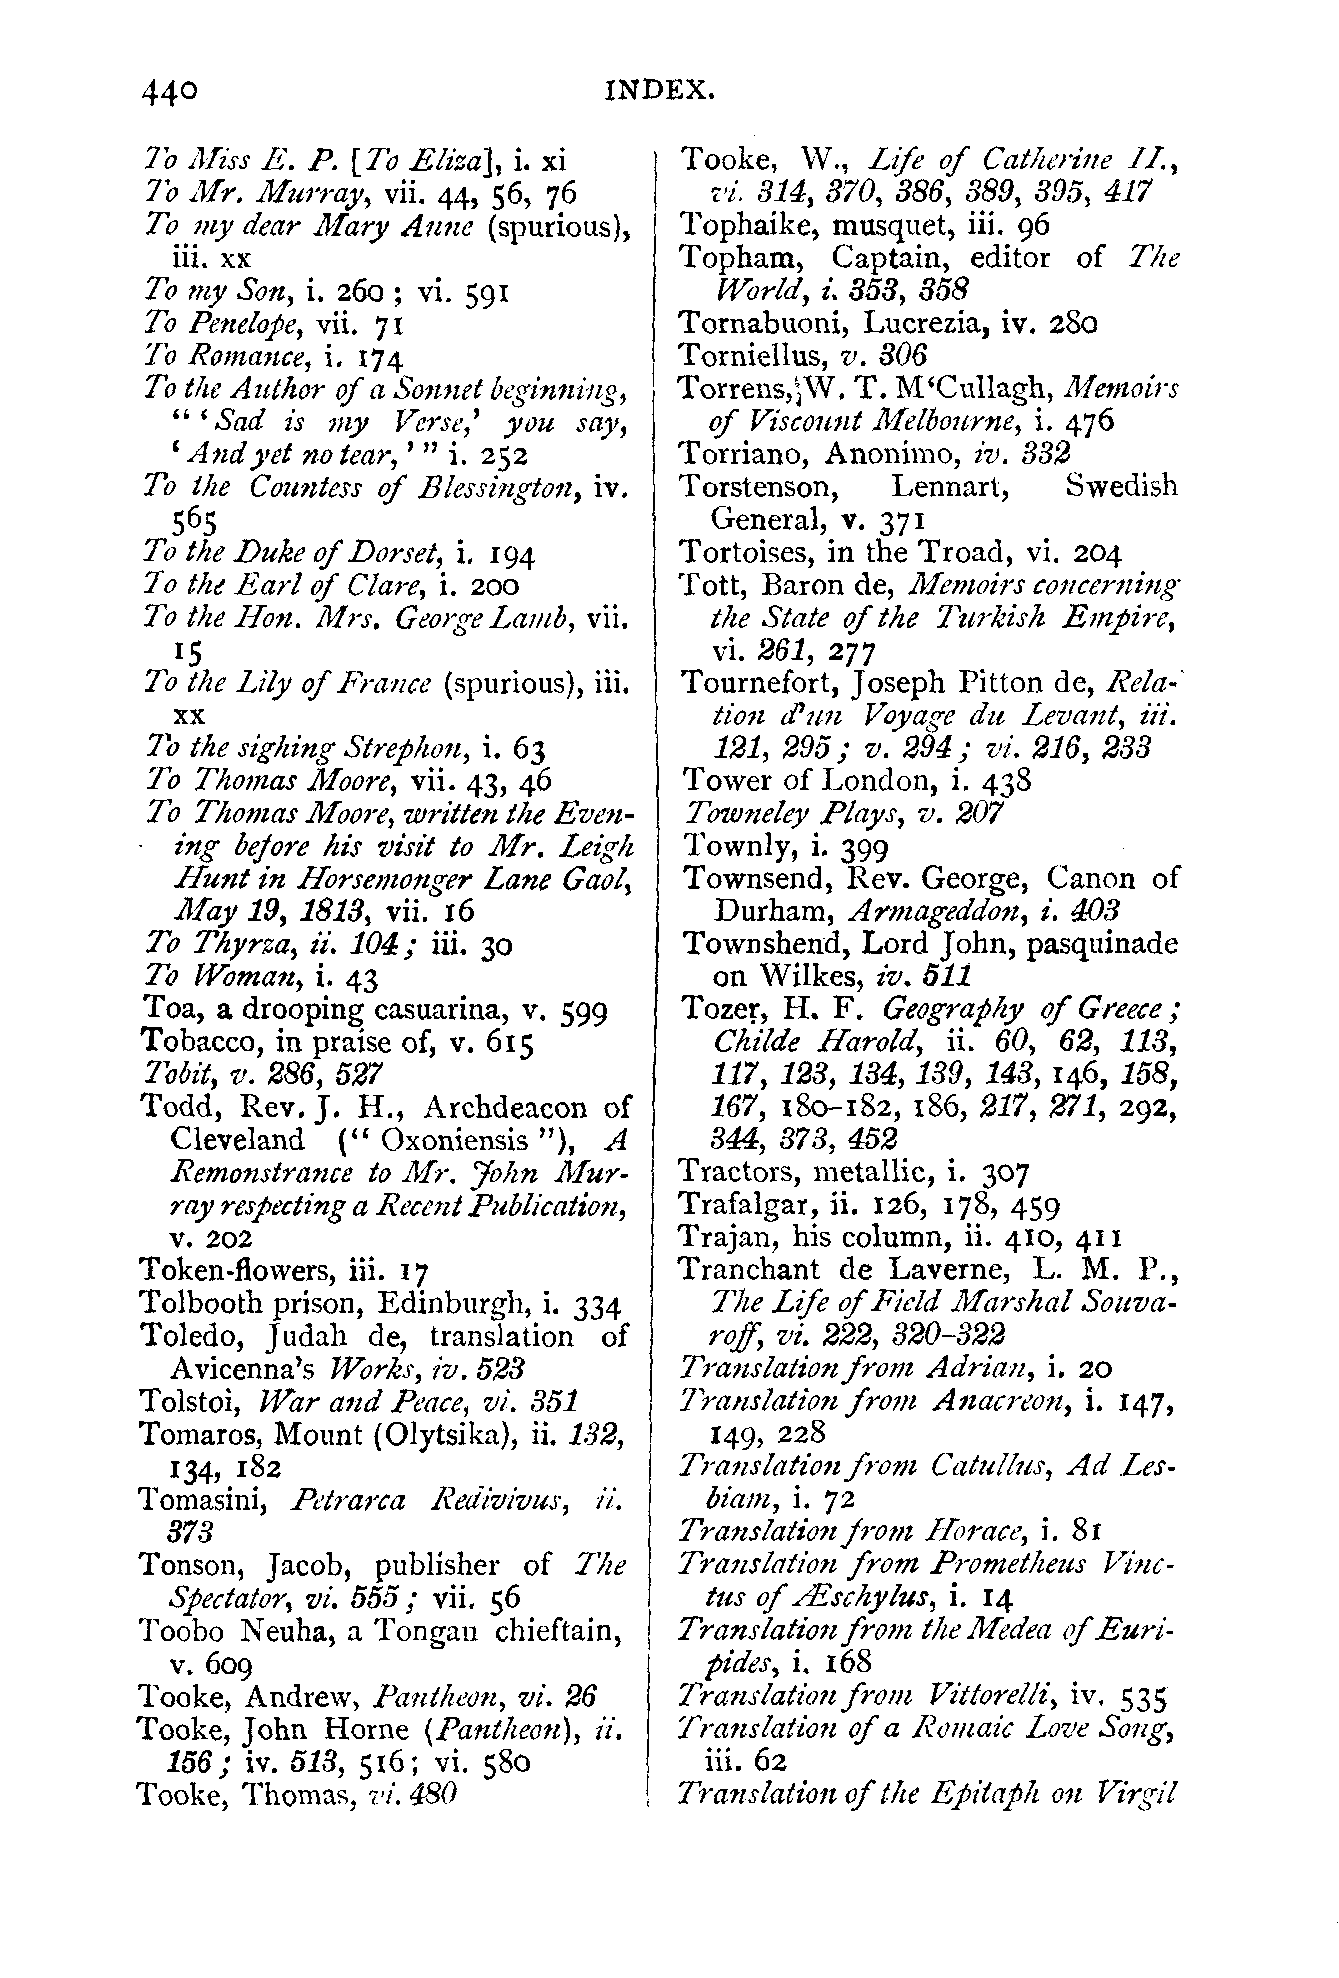 440 INDEX.
To Miss E. P. [To Eliza], i. xi
To Mr. Murray, vii. 44, 56, 76
To my dear Mary Anne (spurious),
iii. xx
To my Son, i. 260 ; vi. 591
To Penelope, vii. 71
To Romance, i. 174
To the Author of a Sonnet beginning,
“ ‘Sad is my Verse,’ you say,
‘ And yet no tear, ’ ” i. 252
To the Countess of Blessington, iv.
565
To the Duke of Dorset, i. 194
To the Earl of Clare, i. 200
To the Hon. Mrs. George Lamb, vii.
15
To the Lily of France (spurious), iii.
xx
To the sighing Strephon, i. 63
To Thomas Moore, vii. 43, 46
To Thomas Moore, written the Even-
ing before his visit to Mr. Leigh
Hunt in Horsemonger Lane Gaol,
May 19, 1813, vii. 16
To Thyrza, ii. 104 ; iii. 30
To Woman, i. 43
Toa, a drooping casuarina, v. 599
Tobacco, in praise of, v. 615
Tobit, v. 286, 527
Todd, Rev. J. H., Archdeacon of
Cleveland (“ Oxoniensis ”), A
Remonstrance to Mr. John Mur-
ray respecting a Recent Publication,
v. 202
Token-flowers, iii. 17
Tolbooth prison, Edinburgh, i. 334
Toledo, Judah de, translation of
Avicenna’s Works, iv. 523
Tolstoi, War and Peace, vi. 351
Tomaros, Mount (Olytsika), ii. 132,
134, 182
Tomasini, Petrarca Redivivus, ii.
373
Tonson, Jacob, publisher of The
Spectator, vi. 555 ; vii. 56
Toobo Neuha, a Tongan chieftain,
v. 609
Tooke, Andrew, Pantheon, vi. 26
Tooke, John Horne (Pantheon), ii.
156 ; iv. 513, 516; vi. 580
Tooke, Thomas, vi. 480
Tooke, W., Life of Catherine II.,
vi. 314, 370, 386, 389, 395, 417
Tophaike, musquet, iii. 96
Topham, Captain, editor of The
World, i. 353, 358
Tornabuoni, Lucrezia, iv. 280
Torniellus, v. 306
Torrens, W. T. M‘Cullagh, Memoirs
of Viscount Melbourne, i. 476
Torriano, Anonimo, iv. 332
Torstenson, Lennart, Swedish
General, v. 371
Tortoises, in the Troad, vi. 204
Tott, Baron de, Memoirs concerning
the State of the Turkish Empire,
vi. 261, 277
Tournefort, Joseph Pitton de, Rela-
tion d’un Voyage du Levant, iii.
121, 295 ; v. 294 ; vi. 216, 233
Tower of London, i. 438
Towneley Plays, v. 207
Townly, i. 399
Townsend, Rev. George, Canon of
Durham, Armageddon, i. 403
Townshend, Lord John, pasquinade
on Wilkes, iv. 511
Tozer, H. F. Geography of Greece ;
Childe Harold, ii. 60, 62, 113,
117, 123, 134, 139, 143, 146, 158,
167, 180–182, 186, 217, 271, 292,
344, 373, 452
Tractors, metallic, i. 307
Trafalgar, ii. 126, 178, 459
Trajan, his column, ii. 410, 411
Tranchant de Laverne, L. M. P.,
The Life of Field Marshal Souva-
roff, vi. 222, 320–322
Translation from Adrian, i. 20
Translation from Anacreon, i. 147,
149, 228
Translation from Catullus, Ad Les-
biam, i. 72
Translation from Horace, i. 81
Translation from Prometheus Vinc-
tus of Æschylus, i. 14
Translation from the Medea of Euri-
pides, i. 168
Translation from Vittorelli, iv. 535
Translation of a Romaic Love Song,
iii. 62
Translation of the Epitaph on Virgil